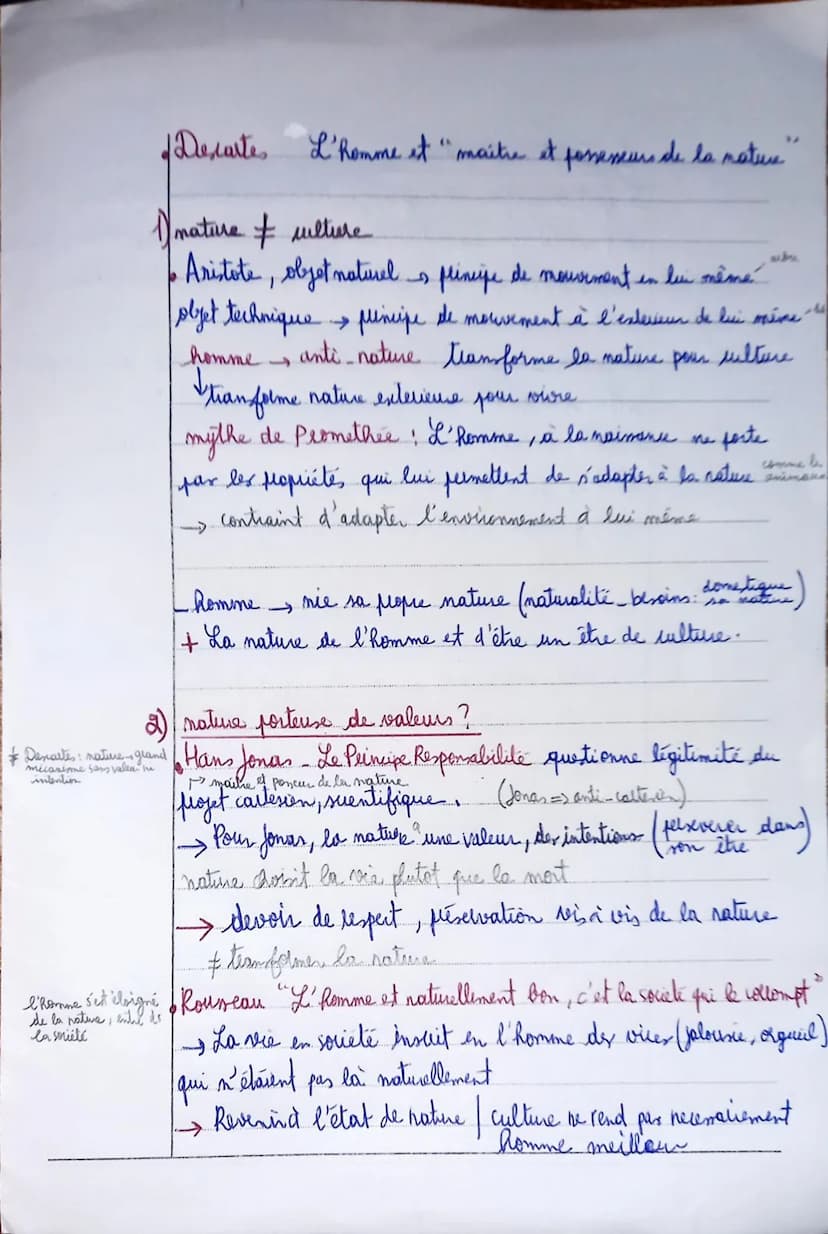 Descartes L'homme et "maître et possesseurs de la nature"
1) nature ≠ culture
Aristote, objet naturel → principe de mouvement en lui même
objet technique → principe de mouvement à l'exterieur de lui même
homme → anti-nature transforme la nature pour culture
↳ transforme nature exterieure pour vivre
mythe de Promethée : L'Homme, à la naissance ne porte
pas les propiétés, qui lui permettent de s'adapter à la nature comme les animaux
→ contraint d'adapter l'environnement à lui même
- homme → nie sa propre nature (naturalité - besoins : domestique sa nature)
+ La nature de l'homme et d'être un être de culture.
2) nature porteuse de valeurs ?
≠ Descartes : nature → grand
mécanisme sans valeur ni
intention
Hans Jonas - Le Principe Responsabilité questionne légitimité du
↱ maitre et posseur de la nature
projet cartesien, scientifique. (Jonas => anti-cartésien)
→ Pour Jonas, la nature a une valeur, des intentions (perseverer dans son être)
nature choisit la vie plutot que la mort
→ devoir de respect, préservation vis à vis de la nature
≠ transformer la nature
l'homme s'est éloigné
de la nature,
la société
Rousseau "L'Homme et naturellement bon, c'est la société qui le corrompt"
→ La vie en société inscrit en l'homme des vices (jalousie, orgueil)
qui n'étaient pas là naturellement
→ Revenir à l'état de nature / culture ne rend pas necessairement
homme meilleur